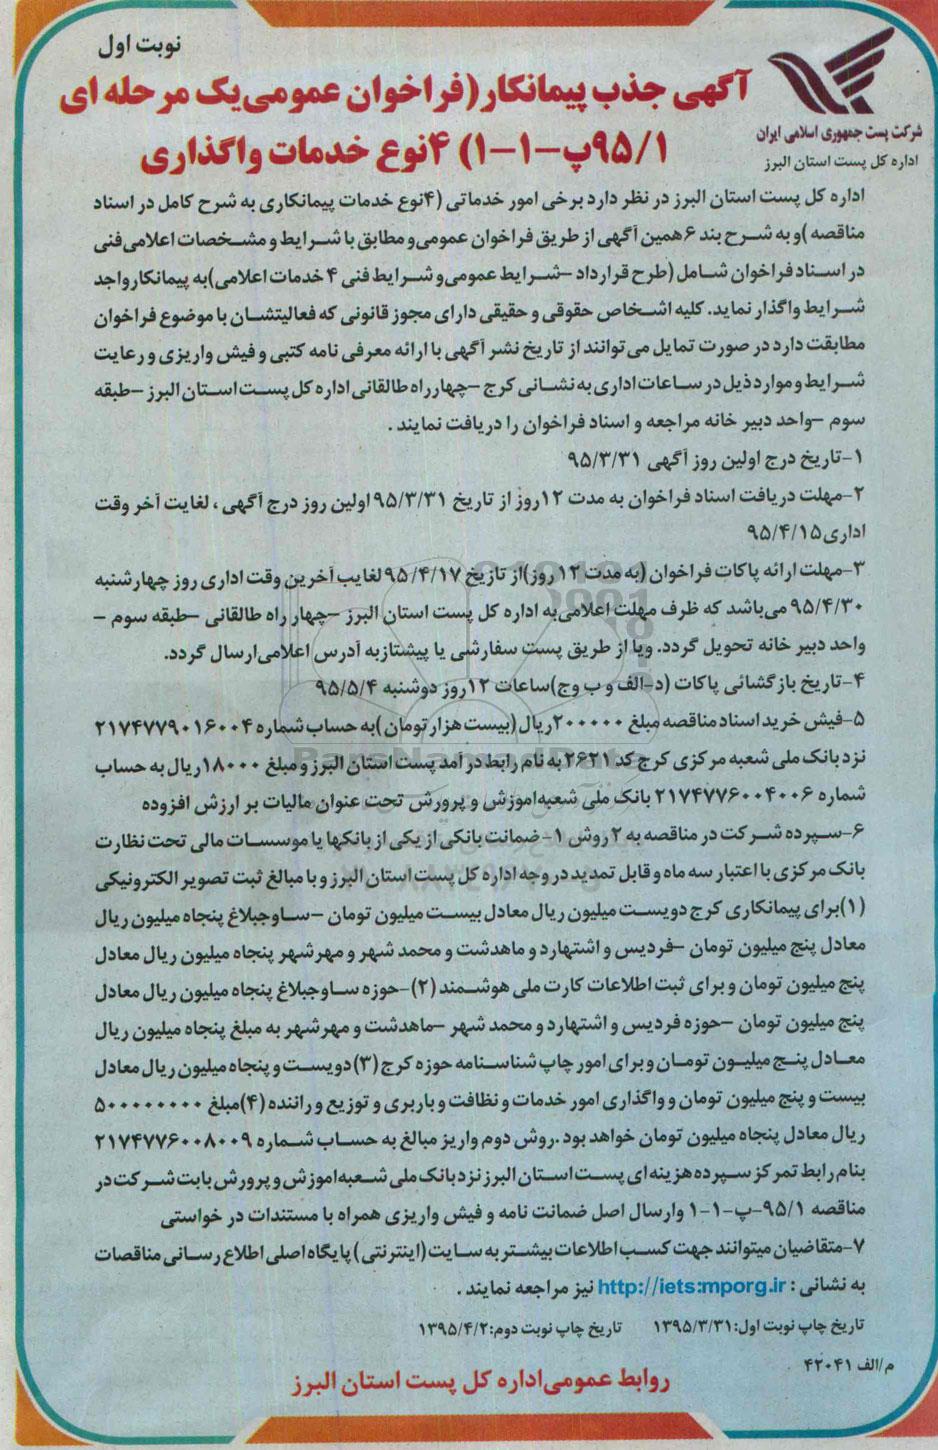 نوبت اول
شرکت پست جمهوری اسلامی ایران
اداره کل پست استان البرز
آگهی جذب پیمانکار(فراخوان عمومی‌یک مرحله ای
۹۵/۱پ-۱-۱) ۴نوع خدمات واگذاری
اداره کل پست استان البرز در نظر دارد برخی امور خدماتی (۴نوع خدمات پیمانکاری به شرح کامل در اسناد
مناقصه )و به شرح بند ۶همین آگهی از طریق فراخوان عمومی‌و مطابق با شرایط و مشخصات اعلامی‌فنی
در اسناد فراخوان شامل (طرح قرارداد -شرایط عمومی‌و شرایط فنی ۴ خدمات اعلامی)به پیمانکار واجد
شرایط واگذار نماید. کلیه اشخاص حقوقی و حقیقی دارای مجوز قانونی که فعالیتشان با موضوع فراخوان
مطابقت دارد در صورت تمایل می توانند از تاریخ نشر آگهی با ارائه معرفی نامه کتبی و فیش واریزی و رعایت
شرایط و موارد ذیل در ساعات اداری به نشانی کرج -چهارراه طالقانی اداره کل پست استان البرز -طبقه
سوم -واحد دبیر خانه مراجعه و اسناد فراخوان را دریافت نمایند .
۱-تاریخ درج اولین روز آگهی ۹۵/۳/۳۱
۲-مهلت دریافت اسناد فراخوان به مدت ۱۲روز از تاریخ ۹۵/۳/۳۱اولین روز درج آگهی ، لغایت آخر وقت
اداری۹۵/۴/۱۵
۳-مهلت ارائه پاکات فراخوان (به مدت ۱۲ روز)از تازیخ ۹۵/۴/۱۷لغایب آخرین وقت اداری روز چهارشنبه
۹۵/۴/۳۰ می‌باشد که ظرف مهلت اعلامی‌به اداره کل پست استان البرز -چهار راه طالقانی -طبقه سوم -
واحد دبیر خانه تحویل گردد. ویا از طریق پست سفارشی یا پیشتازبه آدرس اعلامی‌ارسال گردد.
۴-تاریخ بازگشائی پاکات (د-الف و ب وج)ساعات ۱۲روز دوشنبه ۹۵/۵/۴
۵-فیش خرید اسناد مناقصه مبلغ ۲۰۰۰۰۰ریال (بیست هزار تومان )به حساب شماره ۲۱۷۴۷۷۹۰۱۶۰۰۴
نزد بانک ملی شعبه مرکزی کرج کد ۲۶۲۱ به نام رابط در آمد پست استان البرز و مبلغ ۱۸۰۰۰ریال به حساب
شماره ۲۱۷۴۷۷۶۰۰۴۰۰۶ بانک ملی شعبه‌اموزش و پرورش تحت عنوان مالیات بر ارزش افزوده
۶-سپرده شرکت در مناقصه به ۲ روش ۱- ضمانت بانکی از یکی از بانکها یا موسسات مالی تحت نظارت
بانک مرکزی با اعتبار سه ماه و قابل تمدید در وجه اداره کل پست استان البرز و با مبالغ ثبت تصویر الکترونیکی
(۱)برای پیمانکاری کرج دویست میلیون ریال معادل بیست میلیون تومان -ساوجبلاغ پنجاه میلیون ریال
معادل پنج میلیون تومان -فردیس و اشتهارد و ماهدشت و محمد شهر و مهرشهر پنجاه میلیون ریال معادل
پنج میلیون تومان و برای ثبت اطلاعات کارت ملی هوشمند (۲)-حوزه ساوجبلاغ پنجاه میلیون ریال معادل
پنج میلیون تومان -حوزه فردیس و اشتهارد و محمد شهر -ماهدشت و مهرشهر به مبلغ پنجاه میلیون ریال
معادل پنج میلیون تومان و برای امور چاپ شناسنامه حوزه کرج (۳)دویست و پنجاه میلیون ریال معادل
بیست و پنج میلیون تومان و واگذاری امور خدمات و نظافت و باربری و توزیع و راننده (۴)مبلغ ۵۰۰۰۰۰۰۰۰
ریال معادل پنجاه میلیون تومان خواهد بود .روش دوم واریز مبالغ به حساب شماره ۲۱۷۴۷۷۶۰۰۸۰۰۹
بنام رابط تمرکز سپرده هزینه ای پست استان البرز نزد بانک ملی شعبه‌اموزش و پرورش بابت شرکت در
مناقصه ۹۵/۱-پ-۱-۱ وارسال اصل ضمانت نامه و فیش واریزی همراه با مستندات در خواستی
۷-متقاضیان میتوانند جهت کسب اطلاعات بیشتر به سایت (اینترنتی ) پایگاه اصلی اطلاع رسانی مناقصات
به نشانی : http://iets:mporg.ir نیز مراجعه نمایند .
تاریخ چاپ نوبت اول:۱۳۹۵/۳/۳۱ تاریخ چاپ نوبت دوم:۱۳۹۵/۴/۲
م/الف ۴۲۰۴۱
روابط عمومی‌اداره کل پست استان البرز